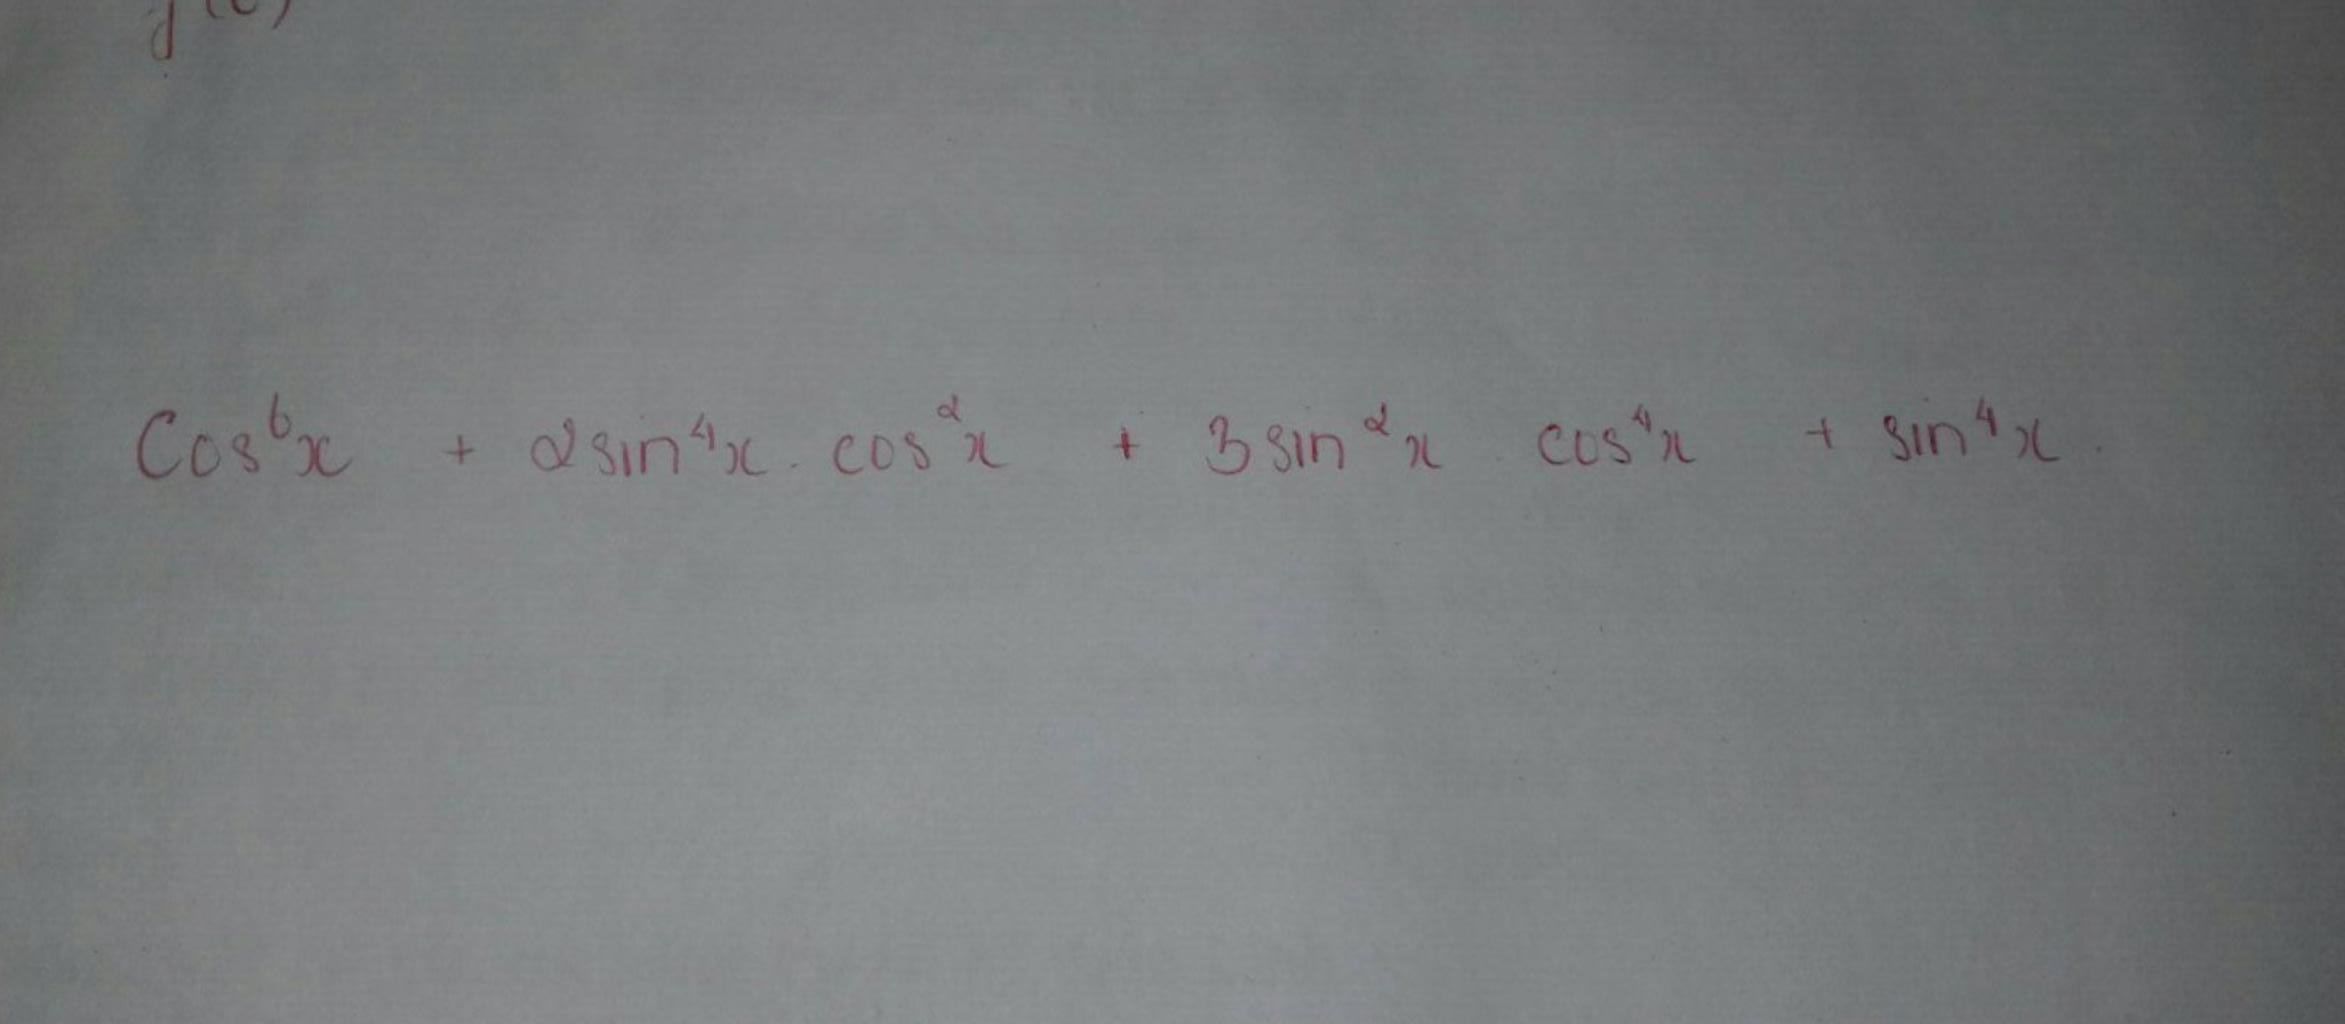 Cos⁶x + 2sin⁴x . cos²x + 3sin²x cos⁴x + sin⁴x .